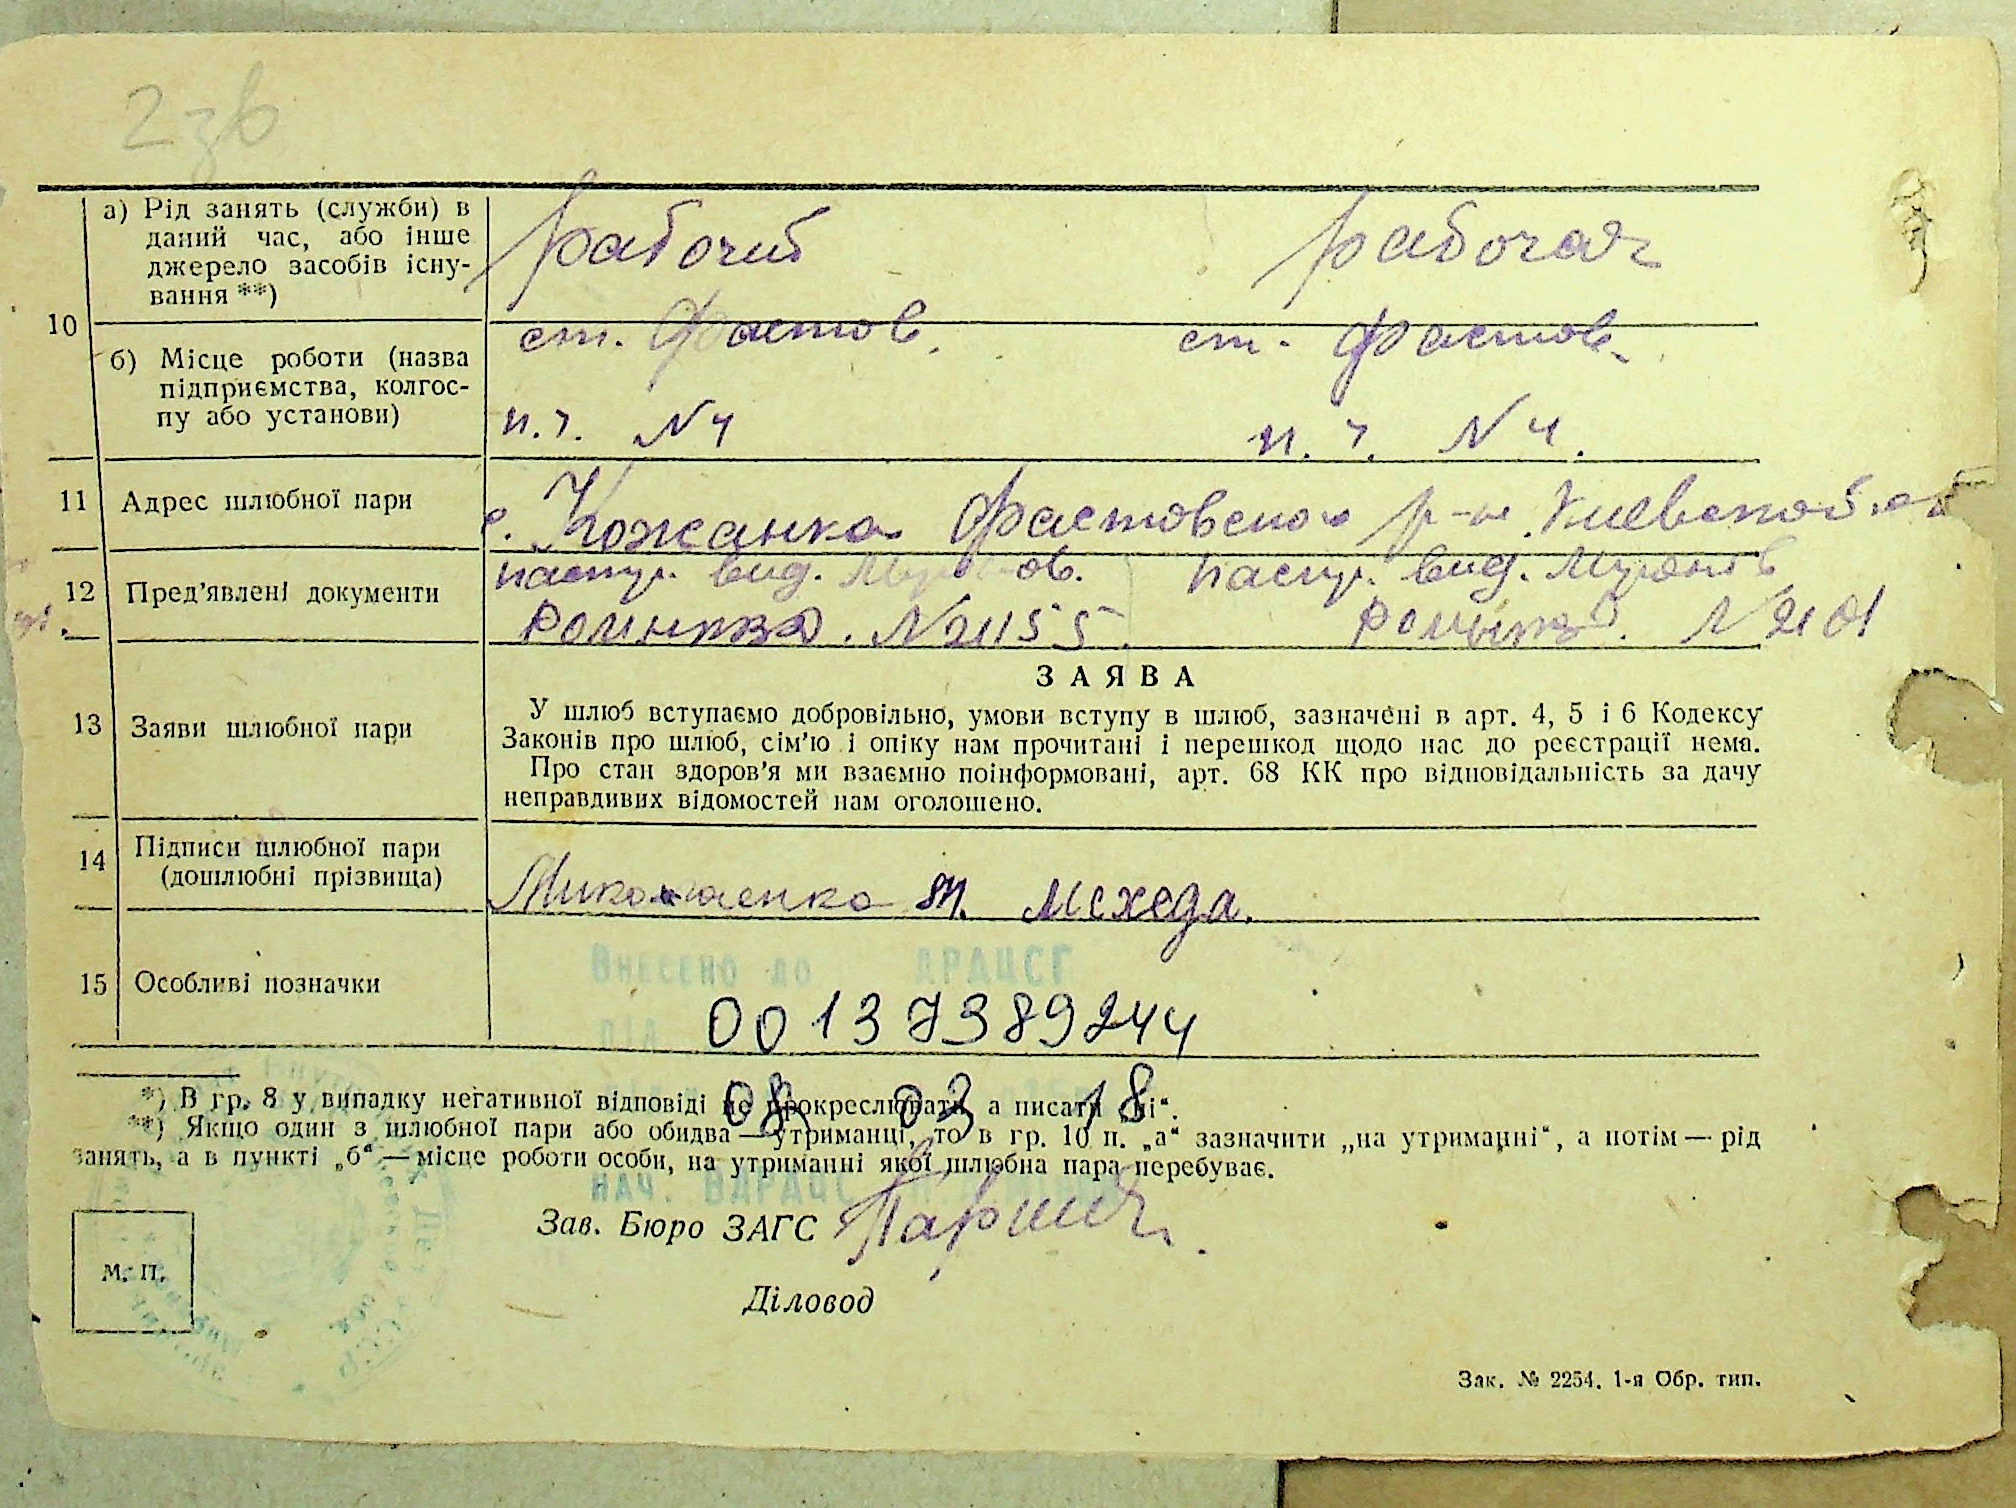 2зв
а) Рід занять (служби) в
даний час, або інше
джерело засобів існу-
вання **)
рабочий
рабочая
10
б) Місце роботи (назва
підприємства, колгос-
пу або установи)
ст. Фастов.
ст. Фастов.
п.ч. N4
п.ч. N4.
11 Адрес шлюбної пари
с. Кожанка Фастовского р-на Киевской об
12 Пред'явлені документи
паспр. вид.
паспр. вид.
N 21155
N 2101
13 Заяви шлюбної пари
ЗАЯВА
У шлюб вступаємо добровільно, умови вступу в шлюб, зазначені в арт. 4, 5 і 6 Кодексу
Законів про шлюб, сім'ю і опіку нам прочитані і перешкод щодо нас до реєстрації нема.
Про стан здоров'я ми взаємно поінформовані, арт. 68 КК про відповідальність за дачу
неправдивих відомостей нам оголошено.
14 Підписи шлюбної пари
(дошлюбні прізвища)
Миколаенко М. Мехеда.
15 Особливі позначки
Внесено до ДРАЦСГ
00137389244
08 03 18
*) В гр. 8 у випадку негативної відповіді не прокреслювати, а писати „ні“.
**) Якщо один з шлюбної пари або обидва — утриманці, то в гр. 10 п. „а“ зазначити „на утриманні“, а потім — рід
занять, а в пункті „б“ — місце роботи особи, на утриманні якої шлюбна пара перебуває.
Зав. Бюро ЗАГС
Діловод
М. П.
Зак. № 2254. 1-я Обр. тип.